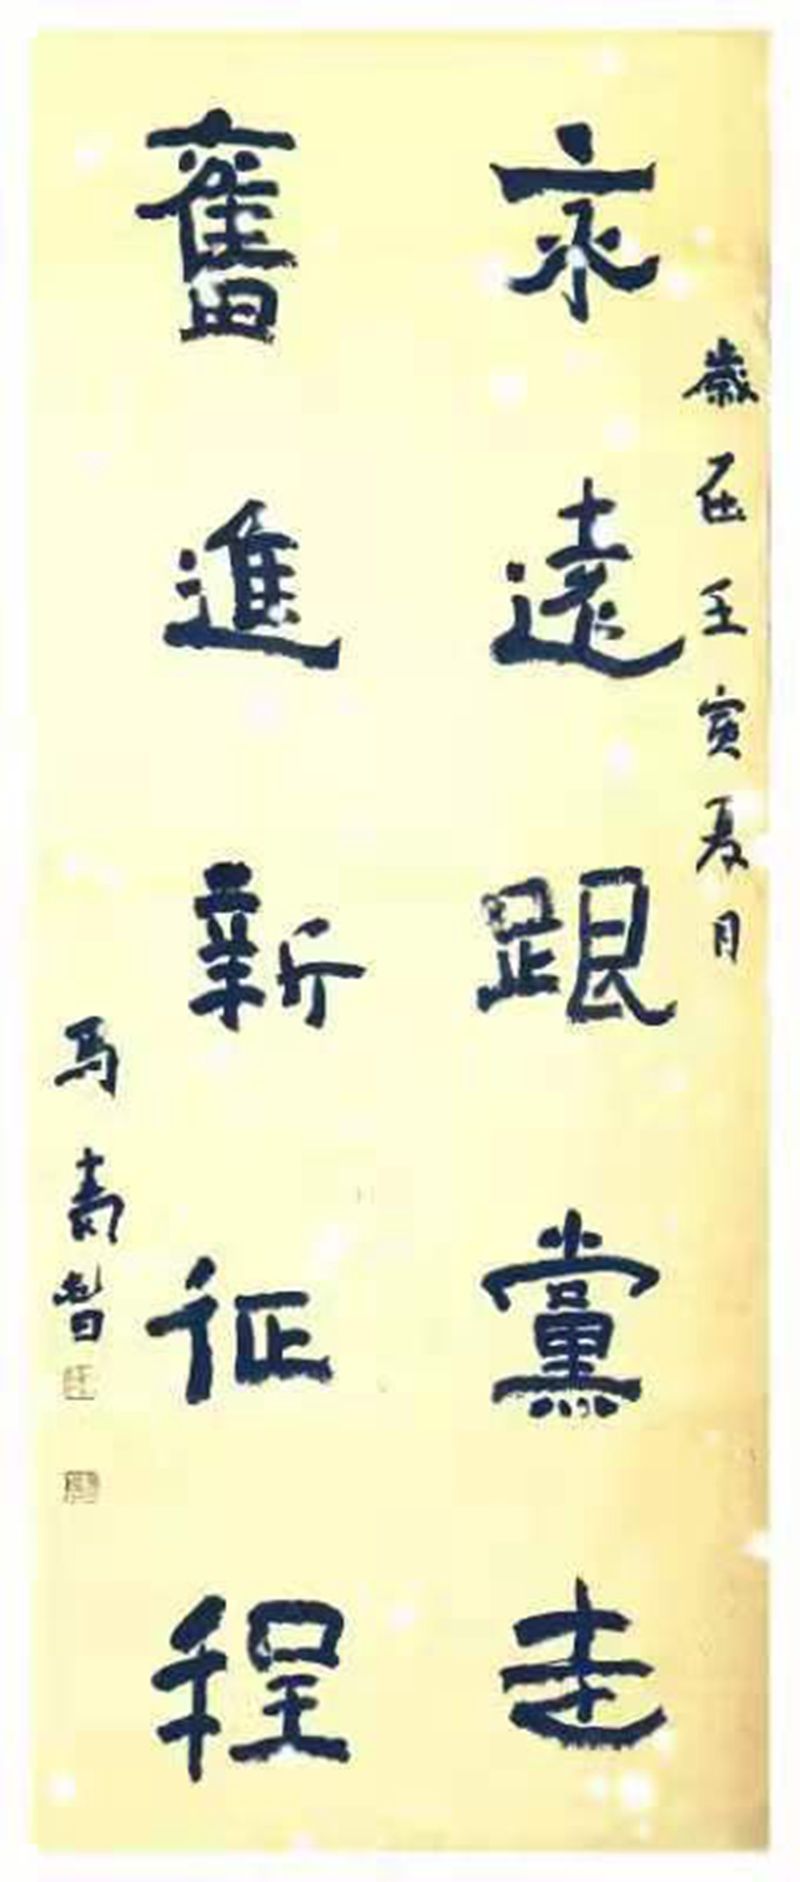 歲在壬寅夏月
永遠跟黨走
奮進新征程
馬